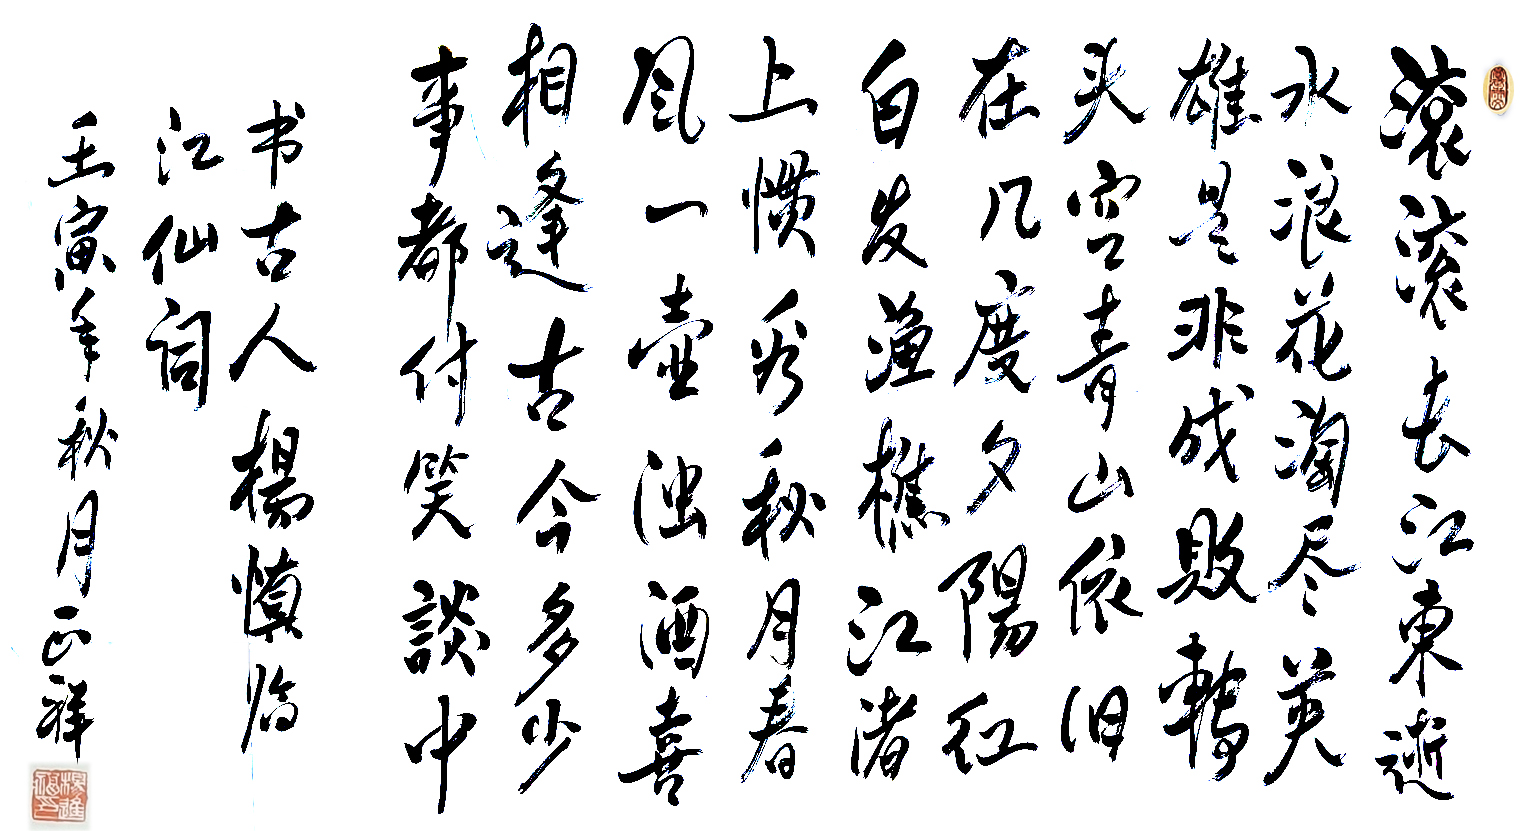 滚滚长江東逝
水浪花淘尽英
雄是非成败轉
头空青山依旧
在几度夕陽红
白发渔樵江渚
上惯看秋月春
风一壶浊酒喜
相逢古今多少
事都付笑談中
书古人楊慎临
江仙词
壬寅年秋月正祥